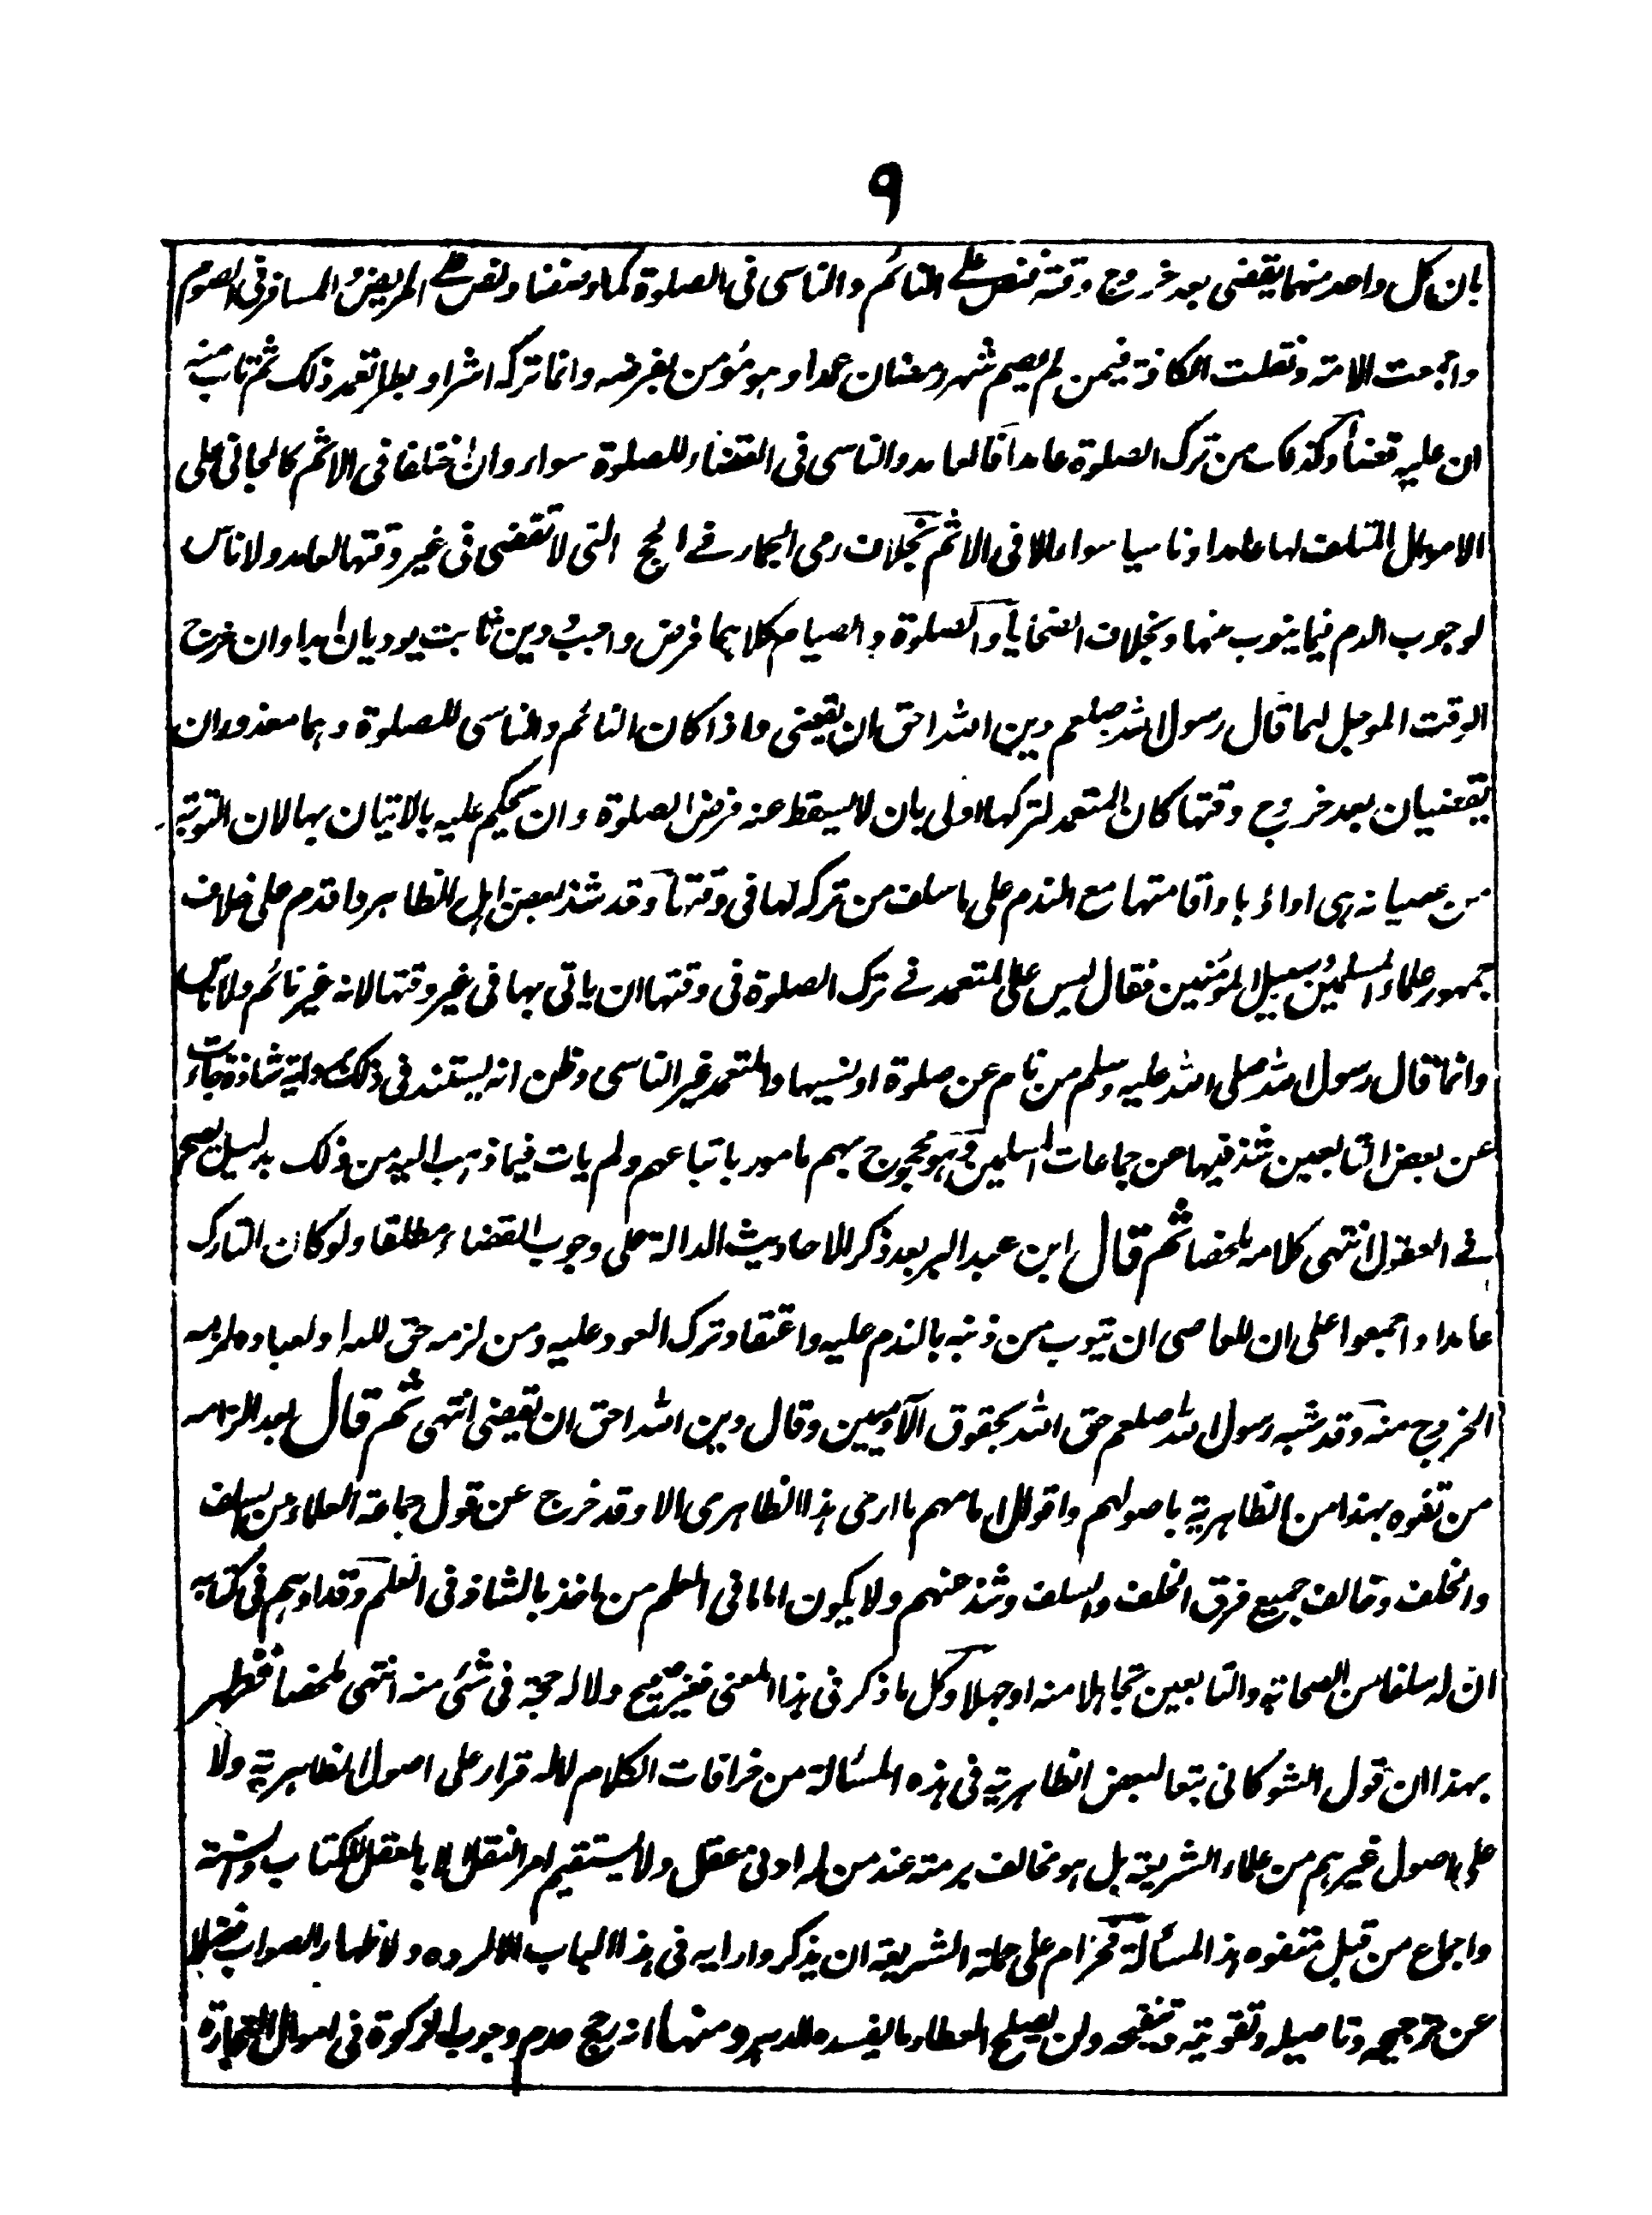 ٩
بان كل واحد منهما يقضى بعد خروج وقته فنص على النائم والناسى فى الصلوة كما وصفنا ونص على المريض والمسافر فى الصوم
واجمعت الامة ونقلت الكافة فيمن لم يصم شهر رمضان عمدا وهو مؤمن بفرضه وانما تركه اشرا وبطرا تعمد ذلك ثم تاب منه
ان عليه قضاءه وكذلك من ترك الصلوة عامدا فالعامد والناسى فى القضاء للصلوة سواء وان اختلفا فى الاثم كالجانى على
الاموال المتلف لها عامدا وناسيا سواء الا فى الاثم بخلاف رمى الجمار فى الحج التى لا تقضى فى غير وقتها لعامد ولا ناس
لوجوب الدم فيما ينوب منها وبخلاف الضحايا والصلوة والصيام كلاهما فرض واجب ودين ثابت يوديان ابدا وان خرج
الوقت الموجل لهما قال رسول الله صلعم دين الله احق ان يقضى واذا كان النائم والناسى للصلوة وهما معذوران
يقضيان بعد خروج وقتها كان المتعمد لتركها اولى بان لا يسقط عنه فرض الصلوة وان يحكم عليه بالاتيان بها لان التوبة
من عصيانه هى اداؤها واقامتها مع الندم على ما سلف من تركه لها فى وقتها وقد شذ بعض اهل الظاهر واقدم على خلاف
جمهور علماء المسلمين وسبيل المؤمنين فقال ليس على المتعمد فى ترك الصلوة فى وقتها ان ياتى بها فى غير وقتها لانه غير نائم ولا ناس
وانما قال رسول الله صلى الله عليه وسلم من نام عن صلوة او نسيها والمتعمد غير الناسى وظن انه يستند فى ذلك برواية شاذة جاءت
عن بعض التابعين شذ فيها عن جماعات المسلمين وهو محجوج بهم مامور باتباعهم ولم يات فيما ذهب اليه من ذلك بدليل يصح
فى العقول انتهى كلامه ملخصا ثم قال ابن عبد البر بعد ذكر الاحاديث الدالة على وجوب القضاء مطلقا ولو كان التارك
عامدا واجمعوا على ان للعاصى ان يتوب من ذنبه بالندم عليه واعتقاد ترك العود عليه ومن لزمه حق لله او لعباده لزمه
الخروج منه وقد شبه رسول الله صلعم حق الله بحقوق الآدميين وقال دين الله احق ان يقضى انتهى ثم قال بعد الزامه
من تفوه بهذا من الظاهرية باصولهم واقوال امامهم ما ارى هذا الظاهرى الا وقد خرج عن قول جماعة العلماء من السلف
والخلف وخالف جميع فرق الخلف والسلف وشذ عنهم ولا يكون اماما فى العلم من ياخذ بالشاذ فى العلم وقد اوهم فى كتابه
ان له سلفا من الصحابة والتابعين تجاهلا منه او جهلا وكل ما ذكر فى هذا المعنى فغير صحيح ولا له حجة فى شئ منه انتهى ملخصا فظهر
بهذا ان قول الشوكانى تبعا لبعض الظاهرية فى هذه المسألة من خرافات الكلام لا له قرار على اصول الظاهرية ولا
على اصول غيرهم من علماء الشريعة بل هو مخالف برمته عند من له ادنى عقل ولا يستقيم امر النقل الا بالعقل للكتاب والسنة
واجماع من قبل متفوه هذا المسألة فحرام على حملة الشريعة ان يذكروا رايه فى هذا الباب الا لرده ولاظهار الصواب فضلا
عن ترجيحه وتاصيله وتقويته وتنقيحه ولن يصلح العطار ما يفسده الدهر ومنها انه رجح عدم وجوب الزكوة فى اموال التجارة